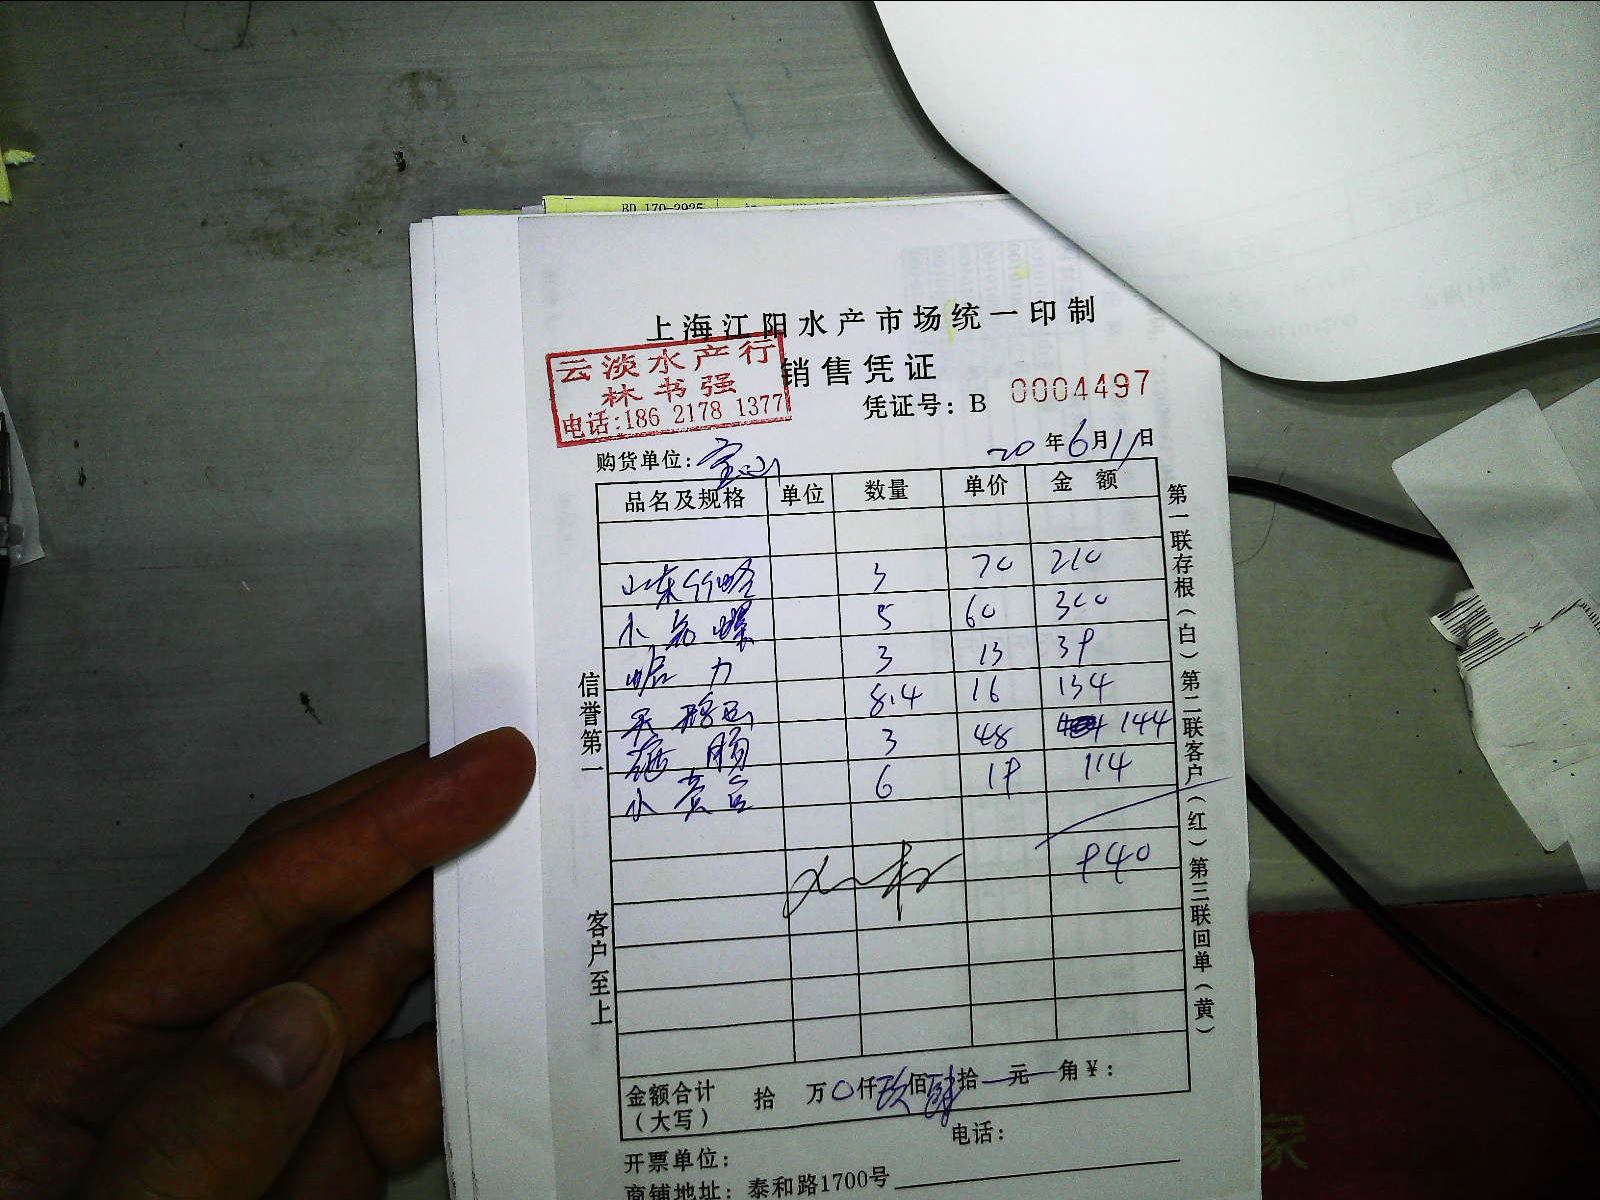 BD 170-2925
上海江阳水产市场统一印制
云淡水产行
林书强
电话:186 2178 1377
销售凭证
凭证号: B 0004497
购货单位: 宝山 20 年 6 月 11 日
品名及规格 单位 数量 单价 金额
山东竹蛏 3 70 210
小花螺 5 60 300
蛤力 3 13 39
8.4 16 134
肠 3 48 144
小黄 6 19 114
940
金额合计 拾 万 0 仟 玖 佰 肆 拾 元 角 ¥:
(大写)
电话:
开票单位:
商铺地址: 泰和路1700号
信誉第一
客户至上
第一联存根(白)第二联客户(红)第三联回单(黄)
家